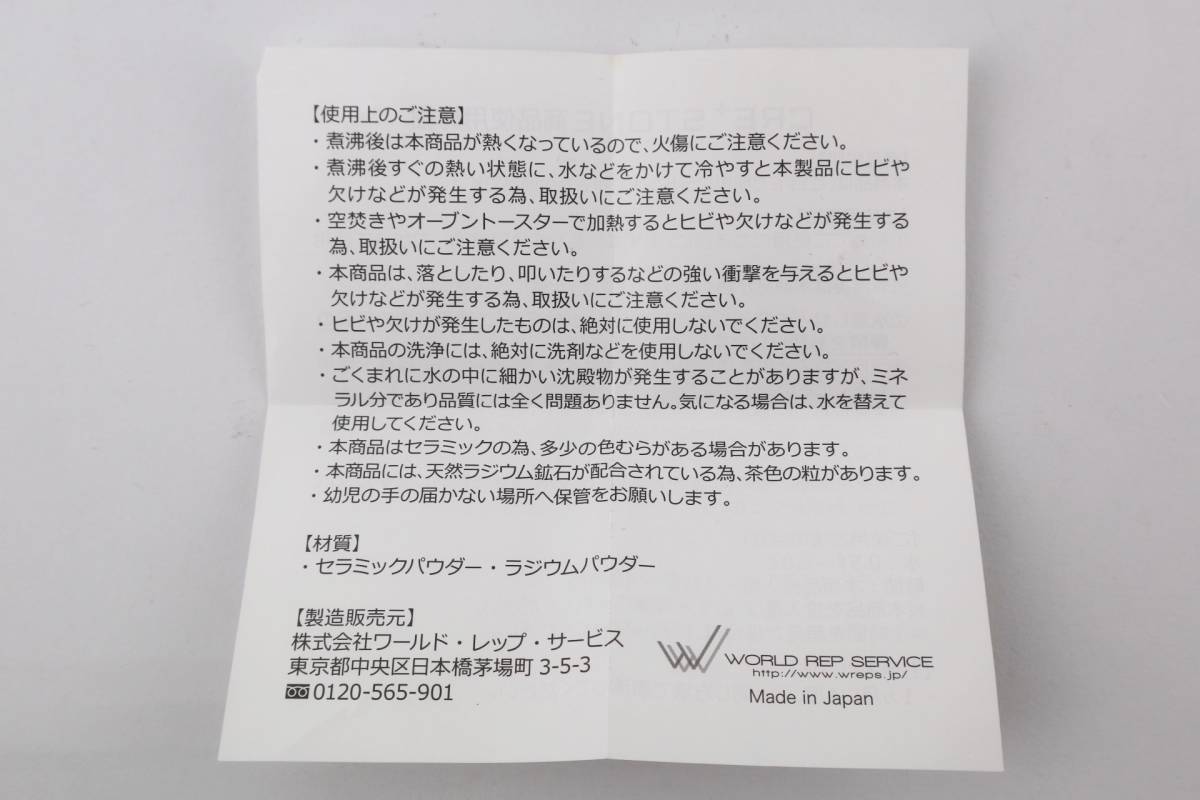 【使用上のご注意】
・煮沸後は本商品が熱くなっているので、火傷にご注意ください。
・煮沸後すぐの熱い状態に、水などをかけて冷やすと本製品にヒビや
欠けなどが発生する為、取扱いにご注意ください。
・空焚きやオーブントースターで加熱するとヒビや欠けなどが発生する
為、取扱いにご注意ください。
・本商品は、落としたり、叩いたりするなどの強い衝撃を与えるとヒビや
欠けなどが発生する為、取扱いにご注意ください。
・ヒビや欠けが発生したものは、絶対に使用しないでください。
・本商品の洗浄には、絶対に洗剤などを使用しないでください。
・ごくまれに水の中に細かい沈殿物が発生することがありますが、ミネ
ラル分であり品質には全く問題ありません。気になる場合は、水を替えて
使用してください。
・本商品はセラミックの為、多少の色むらがある場合があります。
・本商品には、天然ラジウム鉱石が配合されている為、茶色の粒があります。
・幼児の手の届かない場所へ保管をお願いします。
【材質】
・セラミックパウダー・ラジウムパウダー
【製造販売元】
株式会社ワールド・レップ・サービス
東京都中央区日本橋茅場町 3-5-3
0120-565-901
WORLD REP SERVICE
http://www.wreps.jp/
Made in Japan